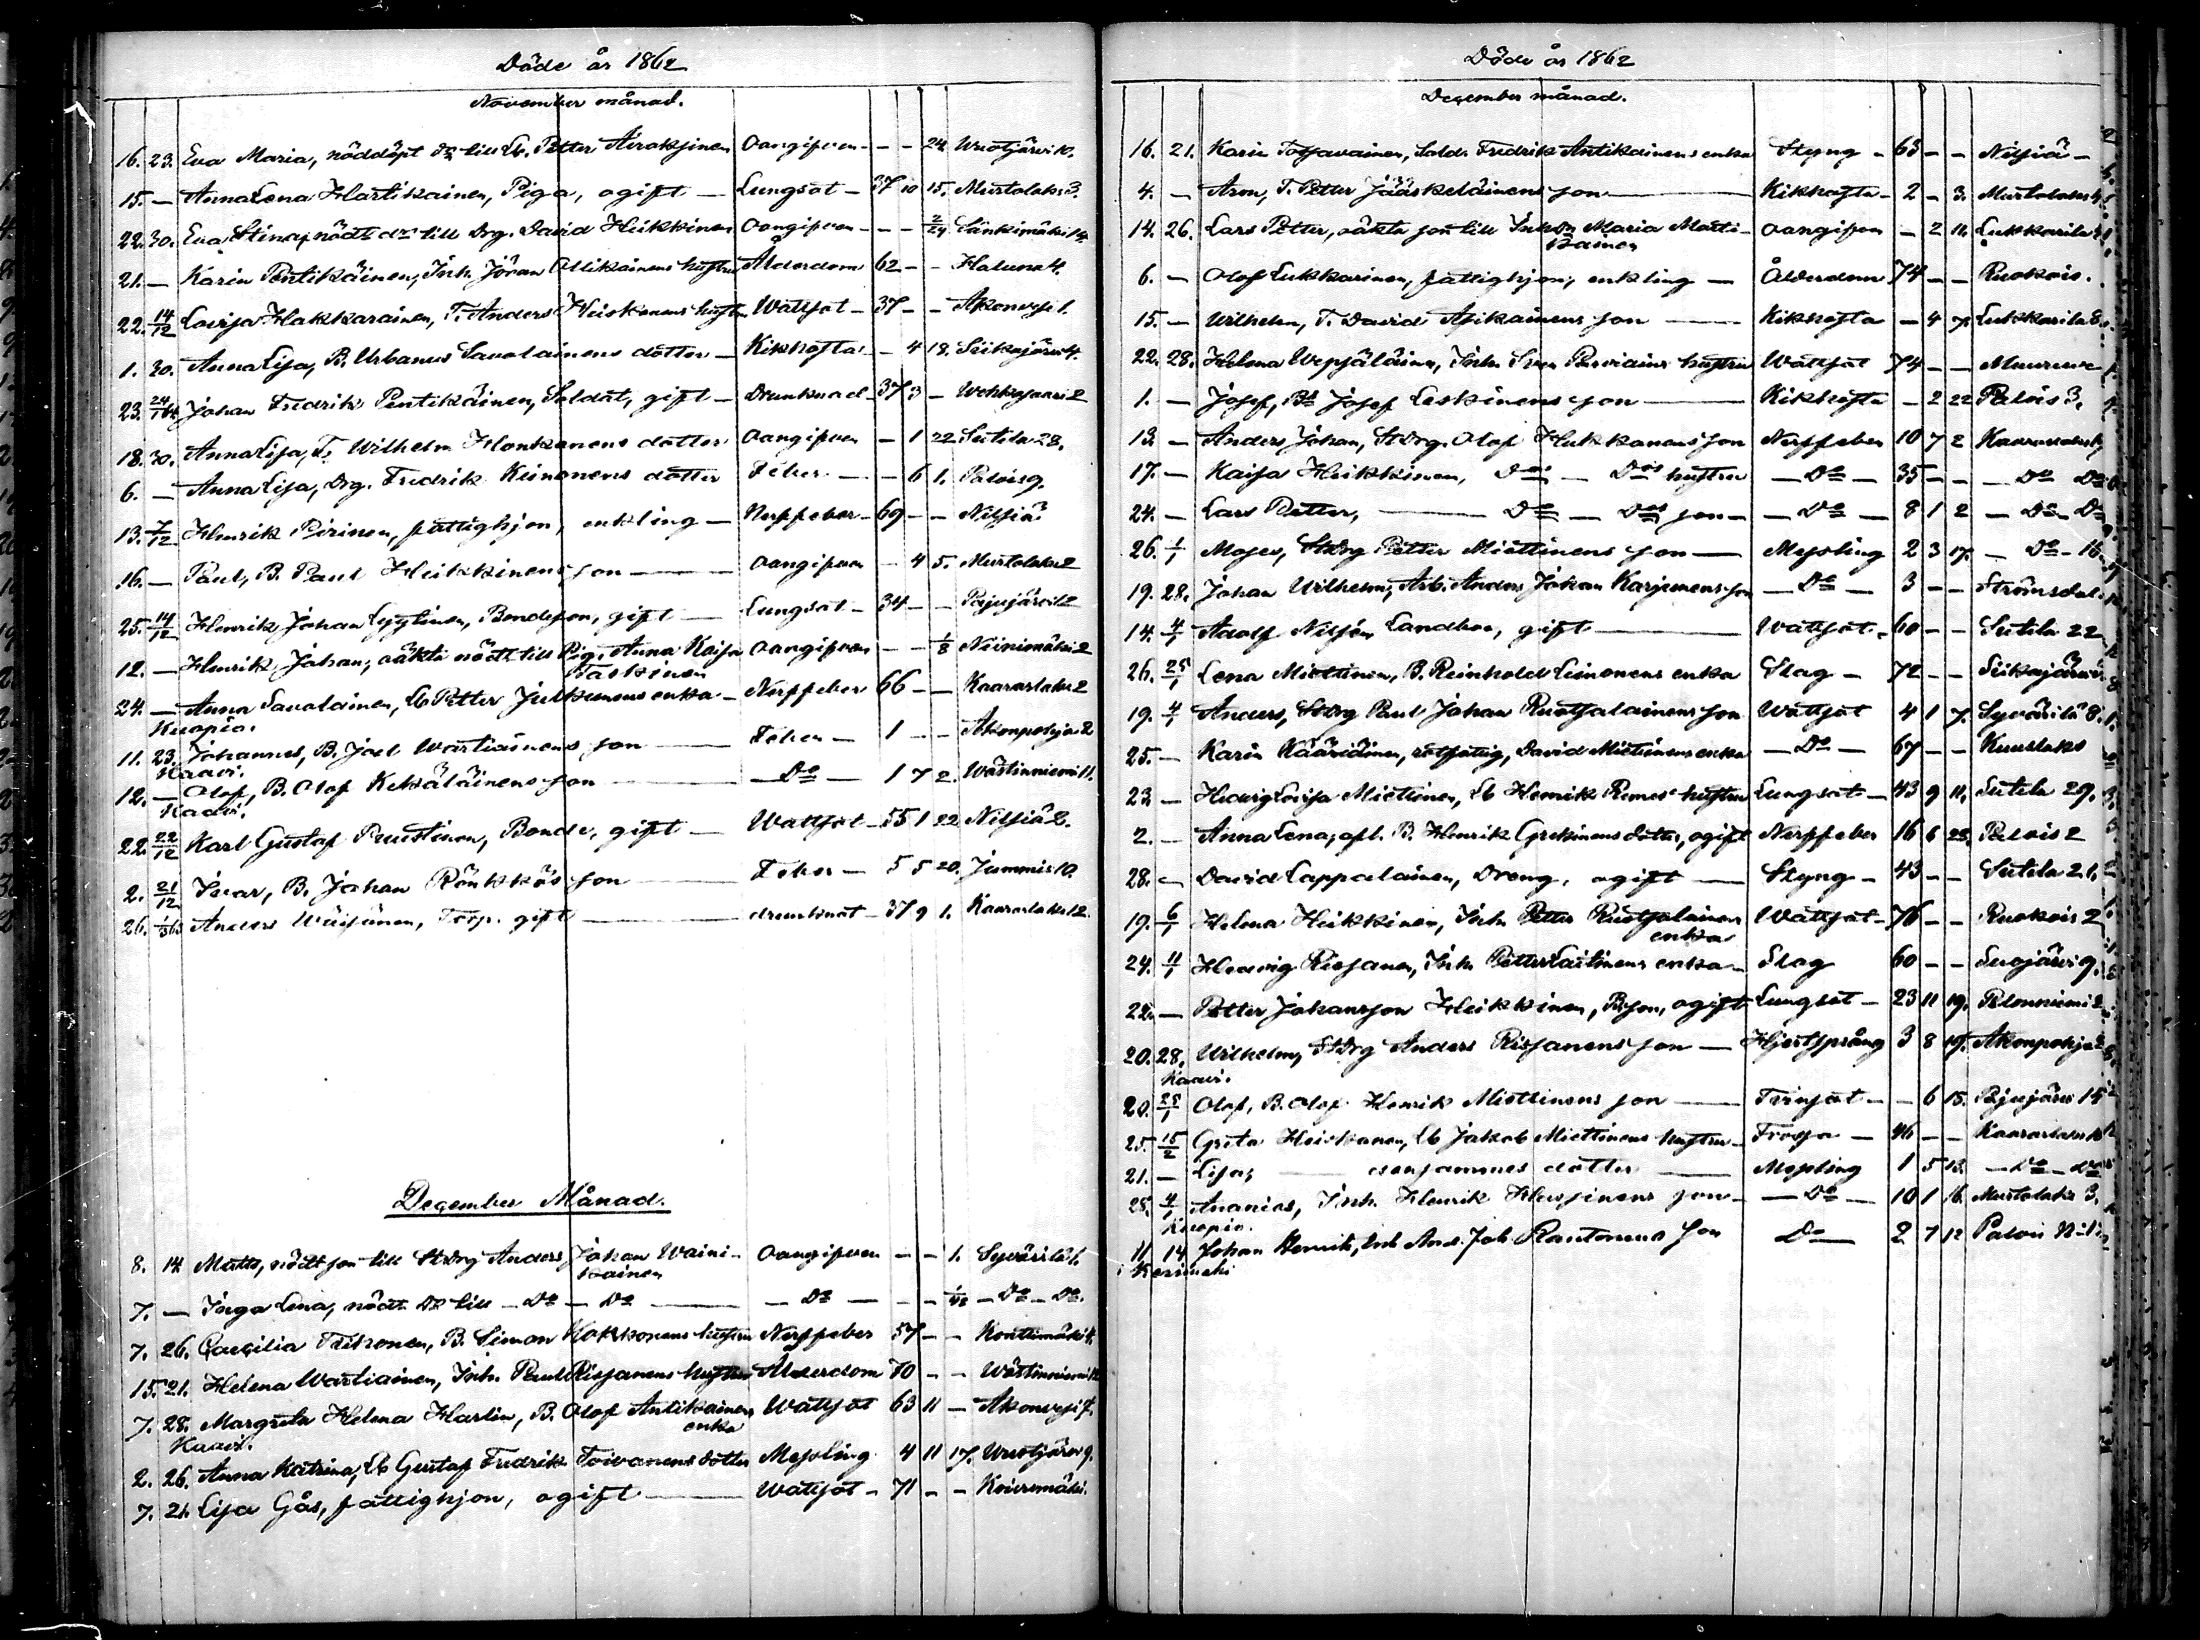 Döde år 1862
November månad.
16. 23. Eva Maria, nöddöpt dr till Lb. Petter Airaksinen Oangifven - - 24 Wuotjärvi
15. — Anna Lena Hartikainen, Piga, ogift — Lungsot - 37 10 15. Murtolaks 3.
22. 30. Eva Stina, nöddt dr till Drg. David Heikkinen Oangifven - - 2/24 Sänkimäki 14
21. — Karin Pentikäinen, Inh. Jöran Ollikainens hustru Ålderdom 62 - - Haluna 4.
22. 14/12 Lovisa Hakkarainen, T. Anders Heiskanens hustru Wattsot - 37 - - Akonvesi 1.
1. 30. Anna Lisa, B. Urbanus Savolainens dotter — Kikhosta - 4 18. Siikajärvi 4.
23. 24/1 64 Johan Fredrik Pentikäinen, Soldat, gift — Drunknad 37 3 - Wehkasaari 2
18. 30. Anna Lisa, T. Wilhelm Honkanens dotter Oangifven - 1 22 Sutela 28.
6. — Anna Lisa, Drg. Fredrik Keinonens dotter Feber — - 6 1. Palois 9.
13. 7/12 Henrik Pirinen, fattighjon, enkling — Nerffeber - 69 - - Nilsiä
16. — Paul, B. Paul Heikkinens son — Oangifven - 4 5. Murtolaks 2
25. 14/12 Henrik Johan Lyytinen, Bondeson, gift — Lungsot - 34 - - Pajujärvi 12
12. — Henrik Johan, oäkta nöddt till Pig. Anna Kaisa Oangifven - - 1/8 Niinimäki 2
Taskinen
24. — Anna Savolainen, Lb Petter Julkunens enka — Nerffeber 66 - - Kaaraslaks 2
Kuopio.
11. 23. Johannes, B. Joel Wartiainens son — Feber — 1 - - Akonpohja 2
Kaavi.
12. — Olof, B. Olof Kekäläinens son — Do — 1 7 2. Wästinniemi 11.
Kaavi.
22. 22/12 Karl Gustaf Puustinen, Bonde, gift — Wattsot - 55 1 22 Nilsiä 2.
2. 21/12 Ivar, B. Johan Rönkkös son — Feber — 5 5 20. Jumminen 10.
26. 1/3 63 Anders Wäisänen, Torp. gift — drunknat - 37 9 1. Kaaraslaks 12.
December Månad.
8. 14 Matts, nödt son till StDrg Anders Johan Waini- Oangifven - - 1. Syvärilä 1.
kainen
7. — Inga Lena, nödt Dr till — Do — Do — Do — - - 1/48 — Do — Do.
7. 26. Cæcilia Tiihonen, B. Simon Kokkonens hustru Nerffeber 57 - - Konttimäki 4.
15. 21. Helena Wartiainen, Inh. Paul Rissanens hustru Ålderdom 70 - - Wästinniemi 12
7. 28. Margreta Helena Harlin, B. Olof Antikainens Wattsot 63 11 - Akonvesi 7.
enka
Kaavi.
2. 26. Anna Katrina, Lb Gustaf Fredrik Toivanens dotter Messling 4 11 17. Wuotjärvi 9.
7. 21. Lisa Gås, fattighjon, ogift — Wattsot - 71 - - Koivumäki.
Döde år 1862
December månad.
16. 21. Karin Tossavainen, Sold. Fredrik Antikainens enka Styng - 63 - - Nilsiä -
4. — Aron, T. Petter Jääskeläinens son — Kikhosta - 2 - 3. Murtolaks 4.
14. 26. Lars Petter, oäkta son till Inhdr Maria Marti- Oangifven - 2 11. Lukkarila
kainen
6. — Olof Lukkarinen, fattighjon, enkling — Ålderdom 74 - - Ruokois.
15. — Wilhelm, T. David Asikainens son — Kikhosta - 4 7. Lukkarila 8.
22. 28. Helena Wepsäläinen, Inh. Sven Parviains hustru Wattsot 74 - - Muuruve
1. — Josef, Bd Josef Leskinens son — Kikhosta - 2 22 Palois 3.
13. — Anders Johan, StDrg. Olof Hukkanens son Nerffeber 10 7 2 Kaaraslaks
17. — Kaisa Heikkinen, Dos — Dos hustru — Do — 35 - - — Do Do
24. — Lars Petter, — Do — Dos son — Do — 8 1 2 — Do — Do
26. 1/1 Moses, StDrg Petter Miettinens son — Messling 2 3 17. — Do — 16.
19. 28. Johan Wilhelm, Arb. Anders Johan Karjunens son — Do — 3 - - Strömsdal.
14. 4/1 Adolf Nilsén Landbo, gift — Wattsot - 60 - - Sutela 22
26. 25/1 Lena Miettinen, B. Reinhold Leinonens enka Slag - 72 - - Siikajärvi
19. 4/1 Anders, StDrg Paul Johan Ruotsalainens son Wattsot 4 1 7. Syvärilä 8.
25. — Karin Kääriäinen, rotfattig, David Miettinens enka — Do — 67 - - Kuuslaks
23. — Hedvig Lovisa Miettinen, Lb Henrik Rimes hustru Lungsot - 43 9 11. Sutela 29.
2. — Anna Lena, afl. B. Henrik Grekinens dotter, ogift Nerffeber 16 6 28. Palois 2
28. — David Lappalainen, Dreng, ogift — Styng - 43 - - Sutela 21.
19. 6/1 Helena Heikkinen, Inh. Petter Ruotsalainens Wattsot - 76 - - Ruokois 2
enka
24. 11/1 Hedvig Rissanen, Inh. Petter Laitinens enka — Slag 60 - - Suojärvi 9.
22. — Petter Johansson Heikkinen, B.son, ogift Lungsot - 23 11 19. Pelonniemi 2
20. 28. Wilhelm, StDrg Anders Rissanens son — Hjertsprång 3 8 19. Akonpohja
Kaavi.
20. 25/1 Olof, B. Olof Henrik Miettinens son — Trinsot - - 6 15. Pajujärvi 14
25. 15/2 Greta Heiskanen, Lb Jakob Miettinens hustru — Frossa - 46 - - Kaaraslaks
21. — Lisa, — densammes dotter — Messling 1 5 13. — Do — Do
28. 4/1 Ananias, Inh. Henrik Hussinens son — Do — 10 1 16. Murtolaks 3.
Kuopio.
11. 14 Johan Henrik, Inh And. Joh Rautonens son Do — 2 7 12 Palois
Kerimäki